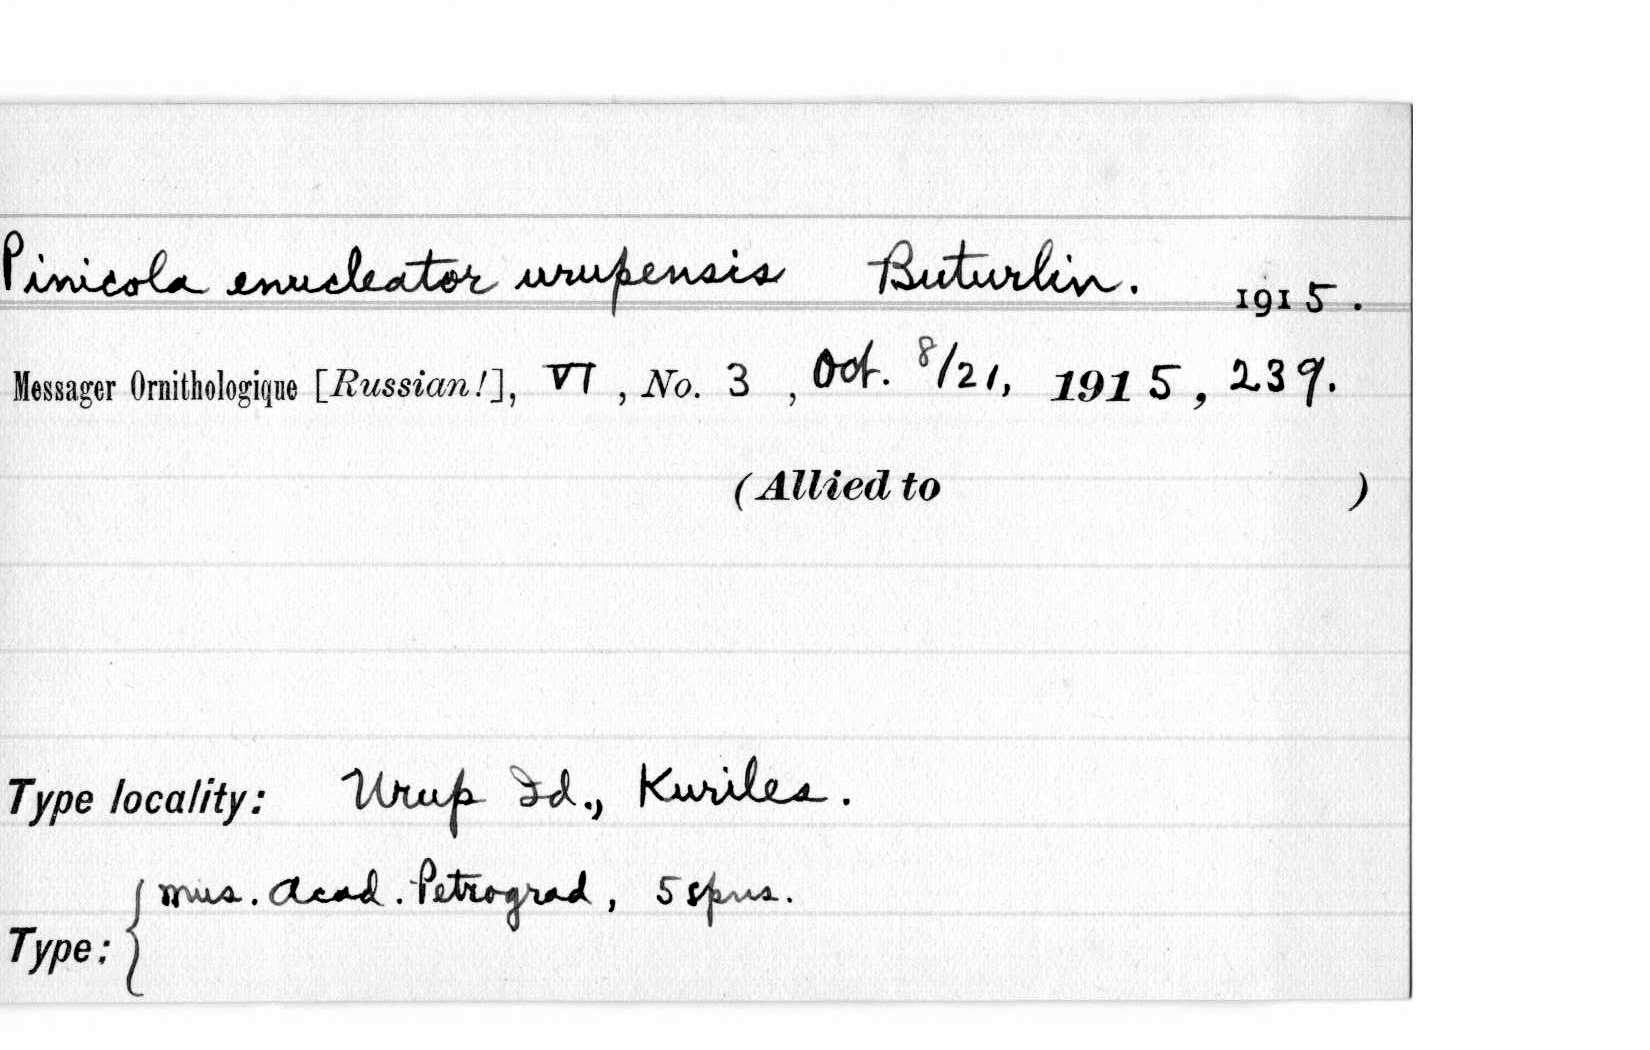 Pinicola enucleator urupensis Buturlin. 1915.
Messager Ornithologique [Russian!], VI, No. 3, Oct. 8/21, 1915, 239.
(Allied to )
Type locality: Urup Id., Kuriles.
mus. Acad. Petrograd, 5 spns.
Type: